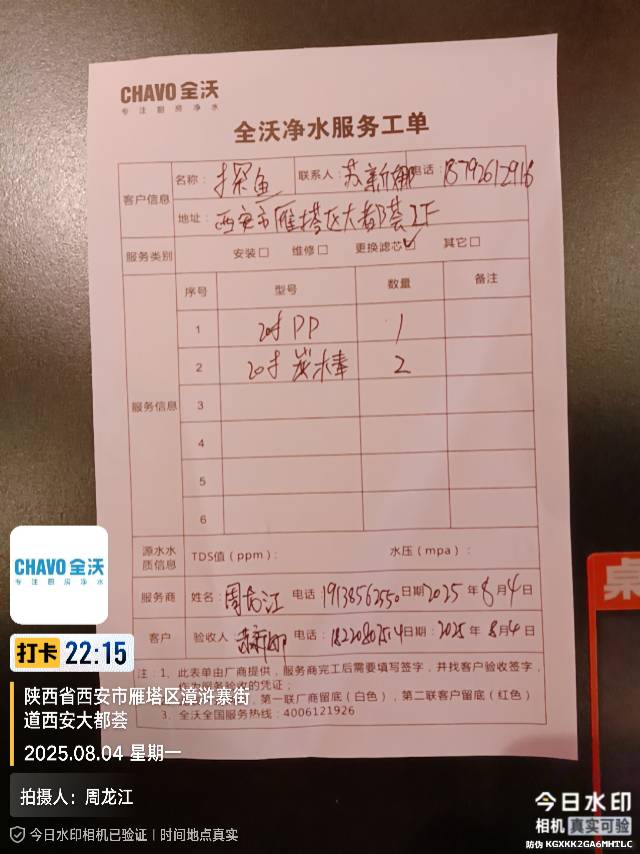 CHAVO 全沃
专注厨房净水
全沃净水服务工单
客户信息
名称: 探鱼 联系人: 苏新娜 电话: 18792612916
地址: 西安市雁塔区大都荟2F
服务类别 安装□ 维修□ 更换滤芯☑ 其它□
服务信息
序号 型号 数量 备注
1 20寸PP 1
2 20寸炭棒 2
3
4
5
6
源水水质信息 TDS值(ppm): 水压(mpa):
服务商 姓名: 周龙江 电话 19138562550 日期 2025年8月4日
客户 验收人: 苏新娜 电话: 日期: 2025年8月4日
注:1、此表单由厂商提供,服务商完工后需要填写签字,并找客户验收签字,
作为服务验收的凭证;
第一联厂商留底(白色),第二联客户留底(红色)
3、全沃全国服务热线:4006121926
CHAVO 全沃
专注厨房净水
打卡 22:15
陕西省西安市雁塔区漳浒寨街
道西安大都荟
2025.08.04 星期一
拍摄人:周龙江
今日水印相机已验证 | 时间地点真实
今日水印
相机 真实可验
防伪 KGXKK2GA6MHTLC
桌